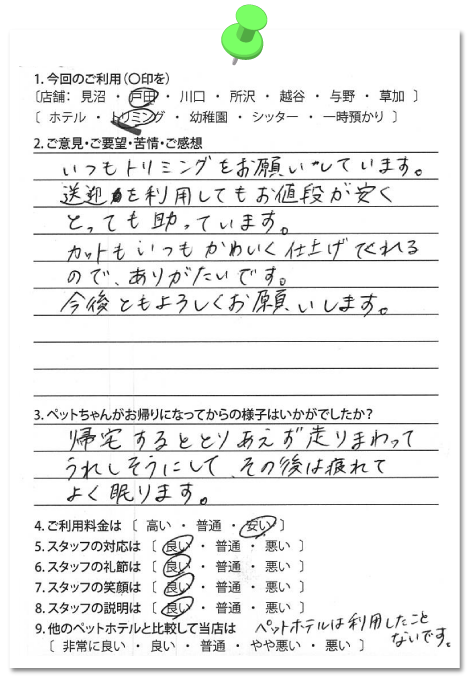 1. 今回のご利用(〇印を)
〔店舗: 見沼 ・ 戸田 ・ 川口 ・ 所沢 ・ 越谷 ・ 与野 ・ 草加 〕
〔 ホテル ・ トリミング ・ 幼稚園 ・ シッター ・ 一時預かり 〕
2. ご意見・ご要望・苦情・ご感想
いつもトリミングをお願いしています。
送迎を利用してもお値段が安く
とっても助っています。
カットもいつもかわいく仕上げてくれる
ので、ありがたいです。
今後ともよろしくお願いします。
3. ペットちゃんがお帰りになってからの様子はいかがでしたか?
帰宅するととりあえず走りまわって
うれしそうにして、その後は疲れて
よく眠ります。
4. ご利用料金は 〔 高い ・ 普通 ・ 安い 〕
5. スタッフの対応は 〔 良い ・ 普通 ・ 悪い 〕
6. スタッフの礼節は 〔 良い ・ 普通 ・ 悪い 〕
7. スタッフの笑顔は 〔 良い ・ 普通 ・ 悪い 〕
8. スタッフの説明は 〔 良い ・ 普通 ・ 悪い 〕
9. 他のペットホテルと比較して当店は
ペットホテルは利用したこと
ないです。
〔 非常に良い ・ 良い ・ 普通 ・ やや悪い ・ 悪い 〕